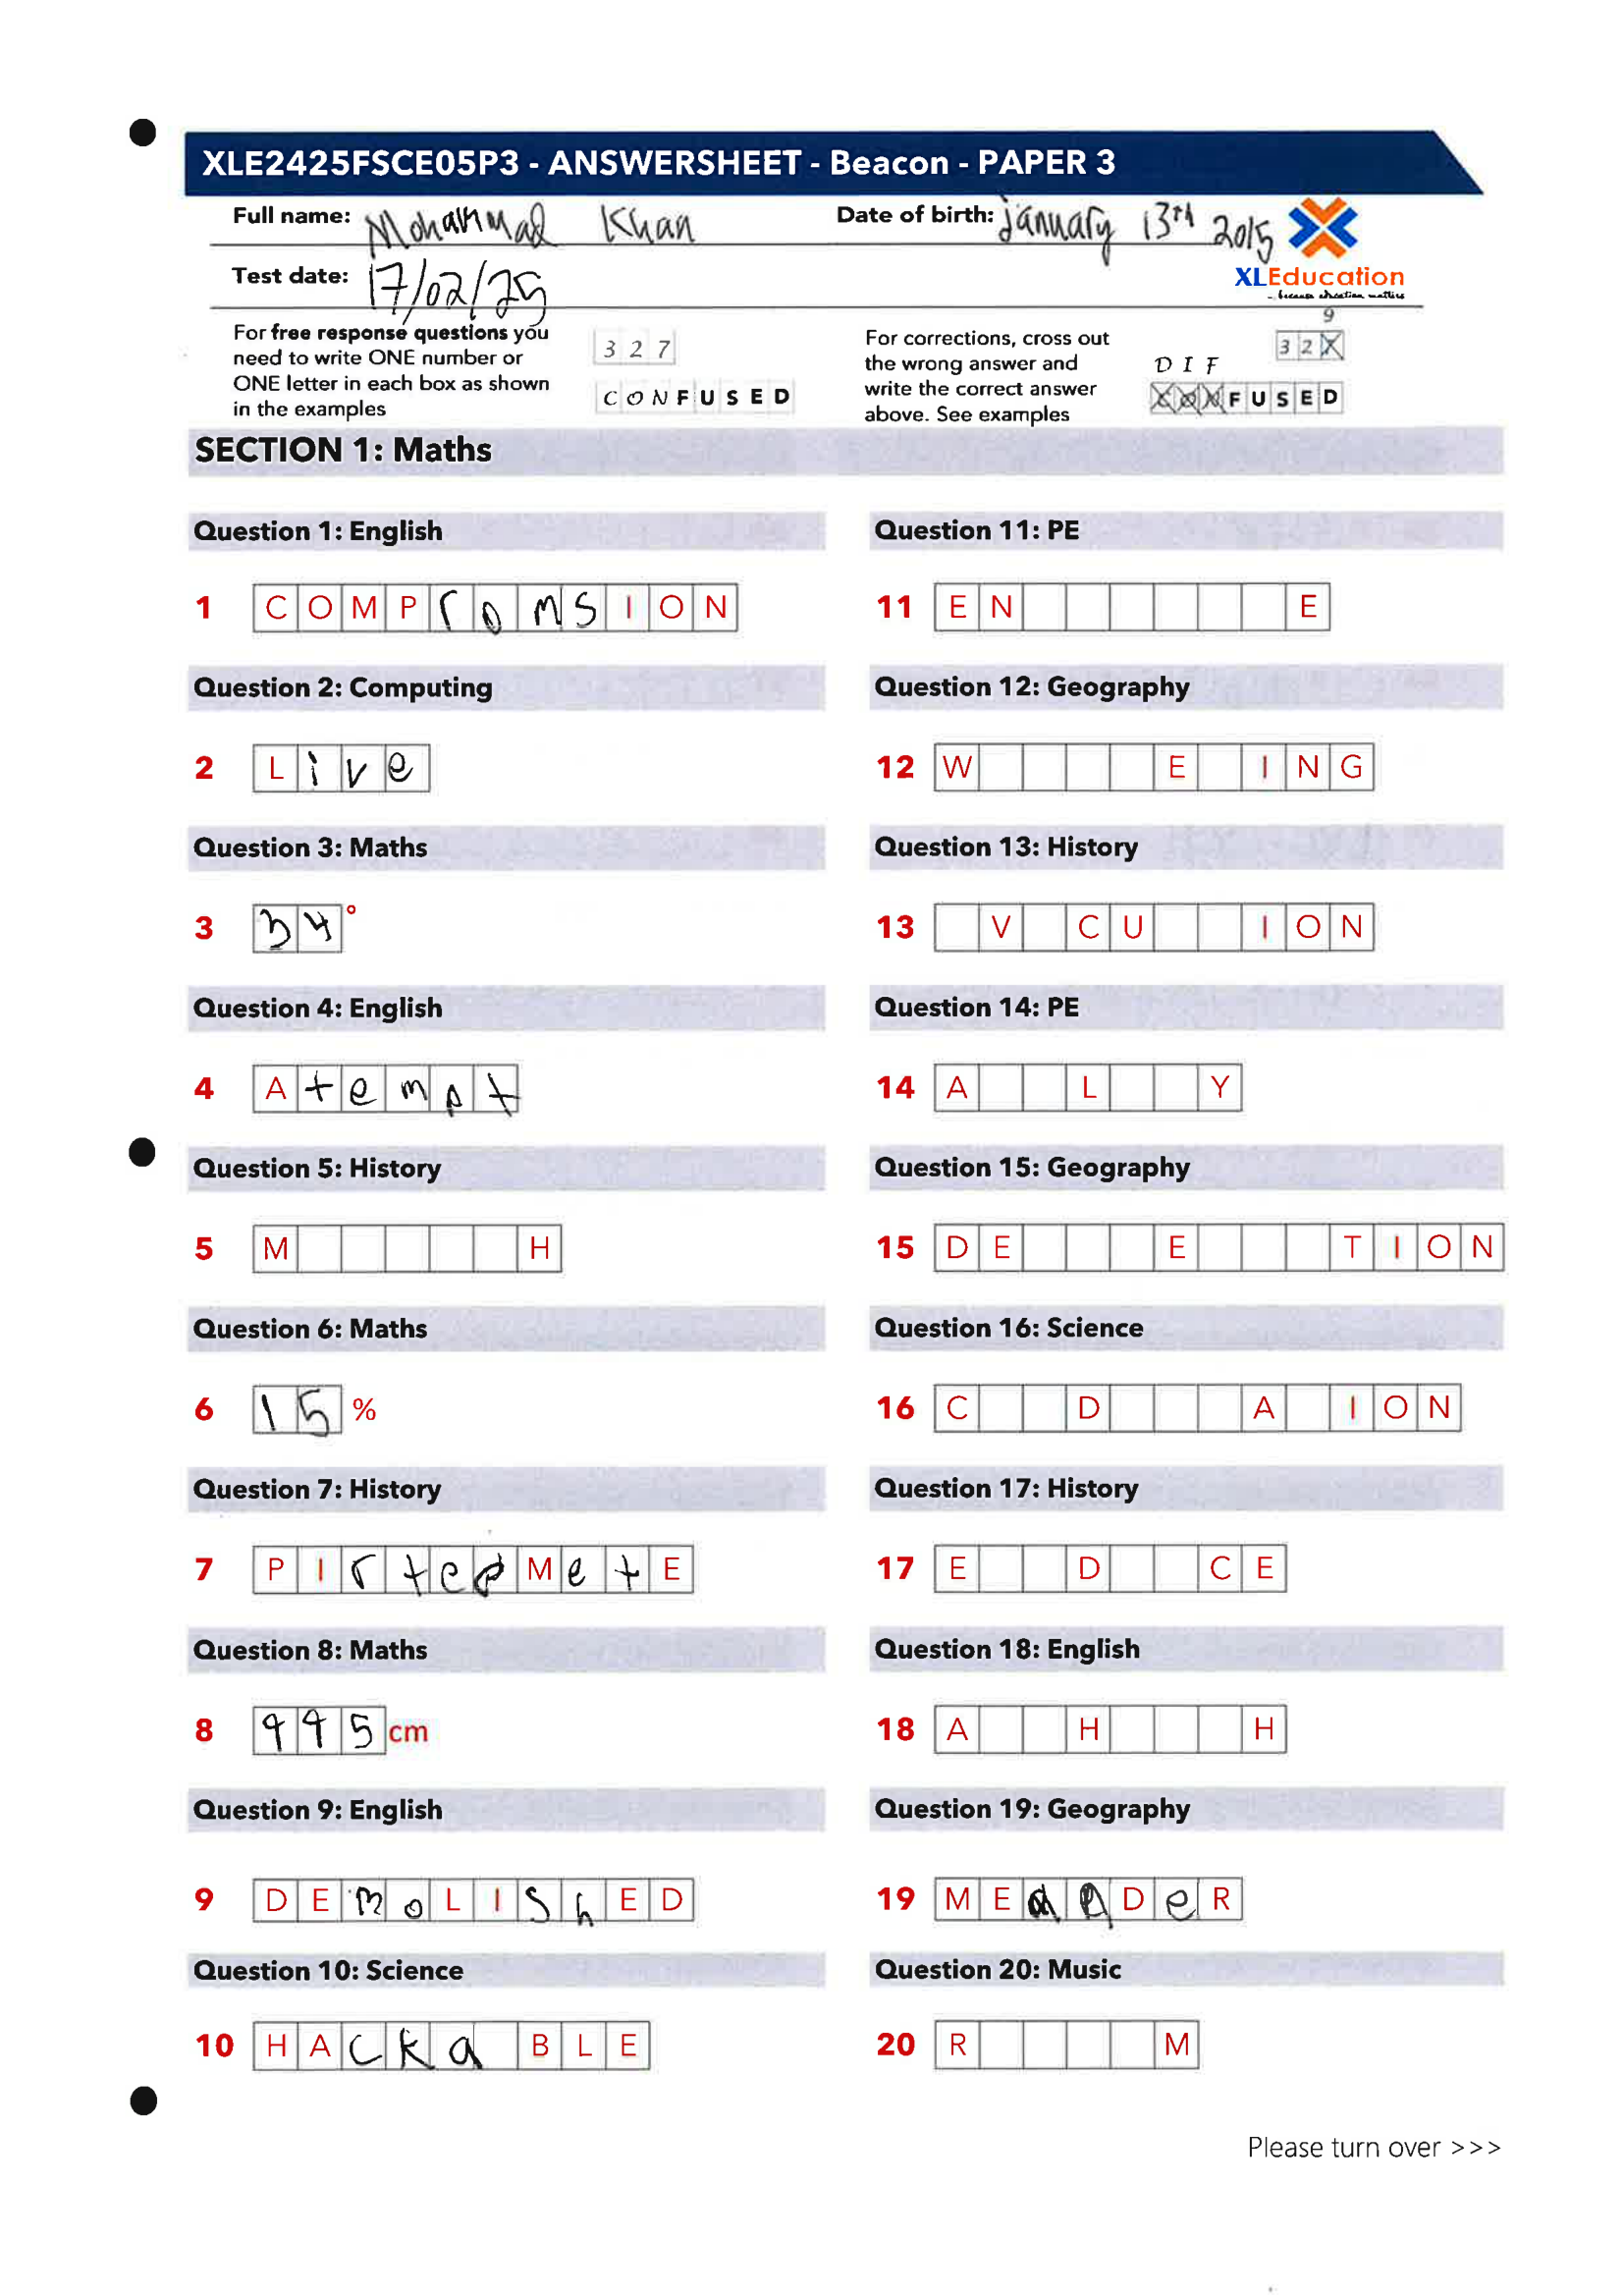 XLE2425FSCE05P3 - ANSWERSHEET - Beacon - PAPER 3
Full name: Mohammad Khan
Date of birth: january 13th 2015
Test date: 17/02/25
XLEducation
... because education matters
For free response questions you
need to write ONE number or
ONE letter in each box as shown
in the examples
3 2 7
C O N F U S E D
For corrections, cross out
the wrong answer and
write the correct answer
above. See examples
9
3 2 X
D I F
F U S E D
SECTION 1: Maths
Question 1: English
1 C O M P r o m s I O N
Question 2: Computing
2 L i v e
Question 3: Maths
3 3 4 °
Question 4: English
4 A t e m p t
Question 5: History
5 M H
Question 6: Maths
6 1 5 %
Question 7: History
7 P I r t e p M e t E
Question 8: Maths
8 9 9 5 cm
Question 9: English
9 D E m o L I S h E D
Question 10: Science
10 H A c k a B L E
Question 11: PE
11 E N E
Question 12: Geography
12 W E I N G
Question 13: History
13 V C U I O N
Question 14: PE
14 A L Y
Question 15: Geography
15 D E E T I O N
Question 16: Science
16 C D A I O N
Question 17: History
17 E D C E
Question 18: English
18 A H H
Question 19: Geography
19 M E D e R
Question 20: Music
20 R M
Please turn over >>>